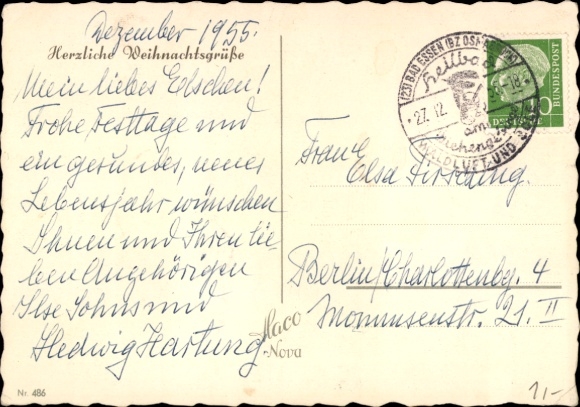 Dezember 1955.
Herzliche Weihnachtsgrüße
Mein liebes Elschen!
Frohe Festtage und
ein gesundes, neues
Lebensjahr wünschen
Ihnen und Ihren lie-
ben Angehörigen
Ilse Sohns und
Hedwig Hartung
Nr. 486
Haco
-Nova
(23) BAD ESSEN (BZ
Heilbad
27.12.
am
WALDLUFT-UND
10
DEUTSCHE
BUNDESPOST
Frau Elsa
Berlin/Charlottenbg. 4
Mommsenstr. 21. II